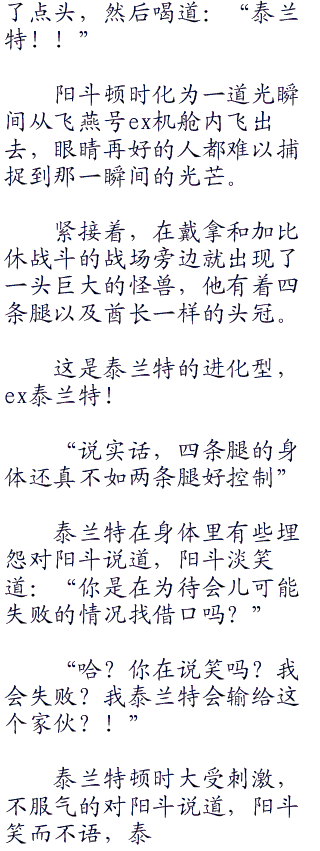 了点头，然后喝道：“泰兰
特！！”
阳斗顿时化为一道光瞬
间从飞燕号ex机舱内飞出
去，眼睛再好的人都难以捕
捉到那一瞬间的光芒。
紧接着，在戴拿和加比
休战斗的战场旁边就出现了
一头巨大的怪兽，他有着四
条腿以及酋长一样的头冠。
这是泰兰特的进化型，
ex泰兰特！
“说实话，四条腿的身
体还真不如两条腿好控制”
泰兰特在身体里有些埋
怨对阳斗说道，阳斗淡笑
道：“你是在为待会儿可能
失败的情况找借口吗？”
“哈？你在说笑吗？我
会失败？我泰兰特会输给这
个家伙？！”
泰兰特顿时大受刺激，
不服气的对阳斗说道，阳斗
笑而不语，泰